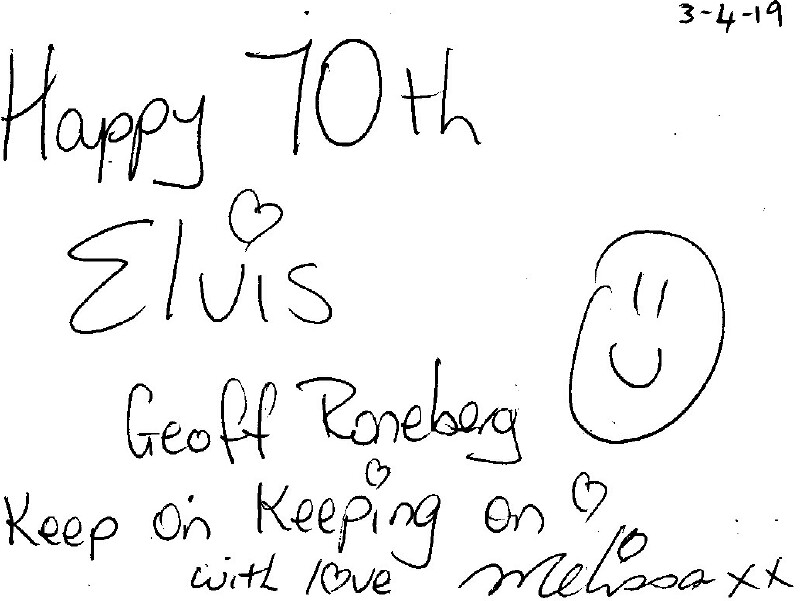 3-4-19
Happy 70th
Elvis
Geoff Roneberg
Keep on Keeping on
with love Melissa xx